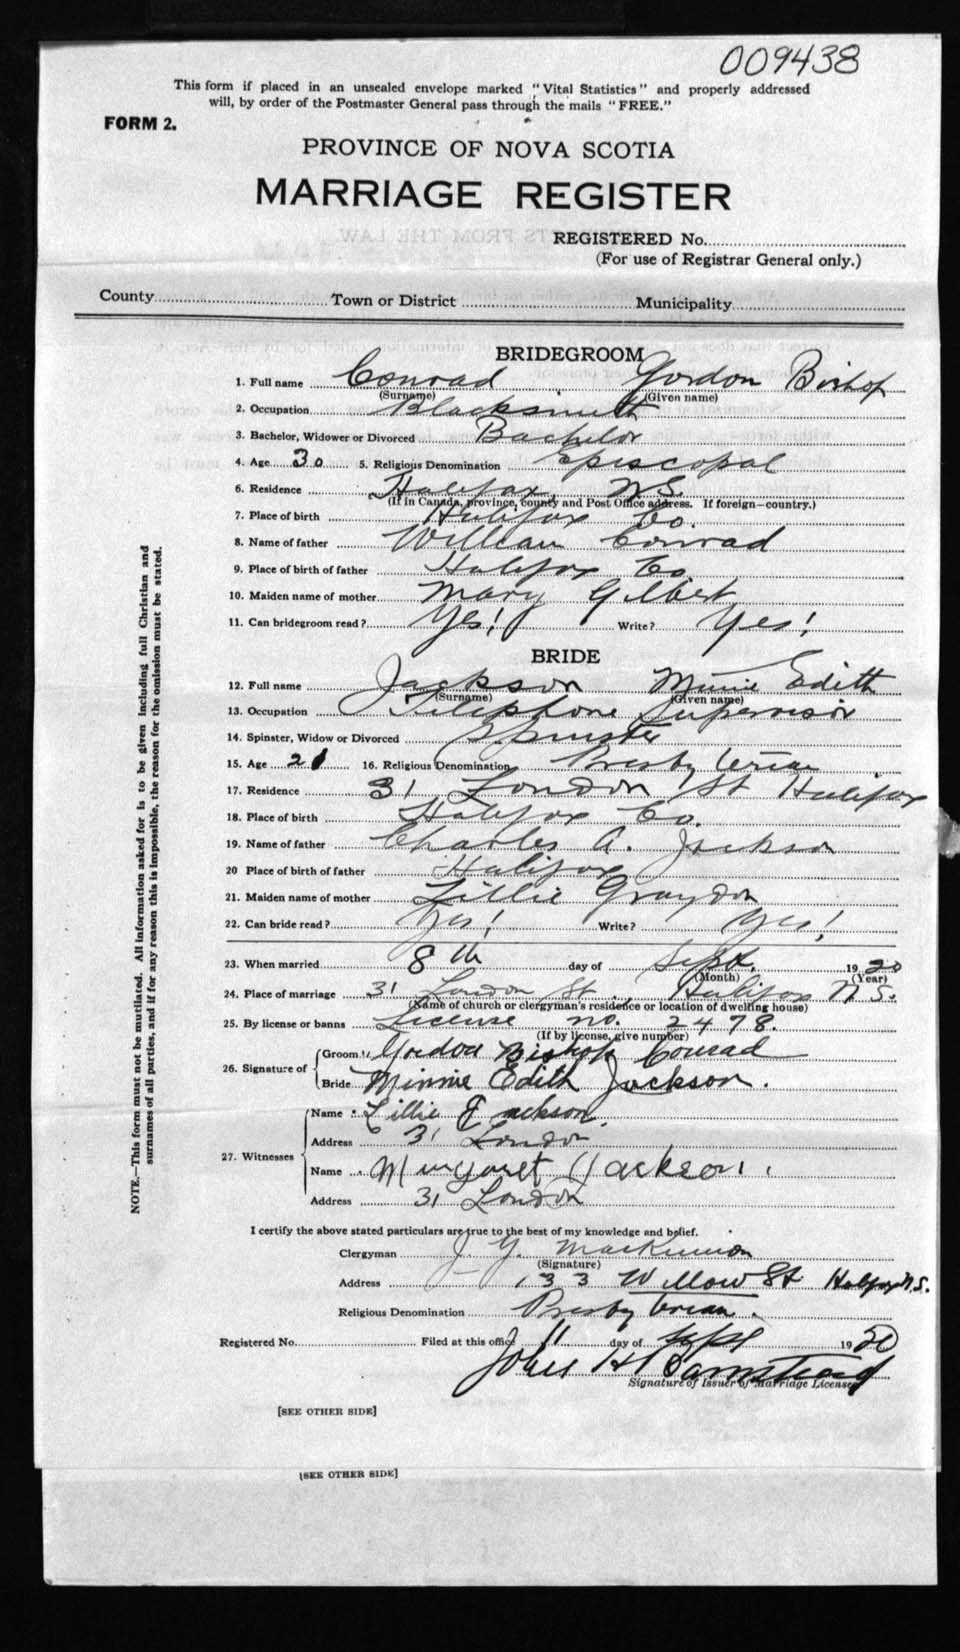 009438
This form if placed in an unsealed envelope marked "Vital Statistics" and properly addressed
will, by order of the Postmaster General pass through the mails "FREE."
FORM 2.
PROVINCE OF NOVA SCOTIA
MARRIAGE REGISTER
REGISTERED No.
(For use of Registrar General only.)
County Town or District Municipality
BRIDEGROOM
1. Full name Conrad Gordon Bishop
(Surname) (Given name)
2. Occupation Blacksmith
3. Bachelor, Widower or Divorced Bachelor
4. Age 30 5. Religious Denomination Episcopal
6. Residence Halifax, N.S.
(If in Canada, province, county and Post Office address. If foreign—country.)
7. Place of birth Halifax Co.
8. Name of father William Conrad
9. Place of birth of father Halifax Co
10. Maiden name of mother Mary Gilbert
11. Can bridegroom read? Yes! Write? Yes!
BRIDE
12. Full name Jackson Minnie Edith
(Surname) (Given name)
13. Occupation Telephone Supervisor
14. Spinster, Widow or Divorced Spinster
15. Age 21 16. Religious Denomination Presbyterian
17. Residence 31 London St Halifax
18. Place of birth Halifax Co.
19. Name of father Charles A. Jackson
20 Place of birth of father Halifax
21. Maiden name of mother Lillie Graydon
22. Can bride read? Yes! Write? Yes!
23. When married 8th day of Sept. 1920
(Month) (Year)
24. Place of marriage 31 London St., Halifax N.S.
(Name of church or clergyman's residence or location of dwelling house)
25. By license or banns License no. 2478.
(If by license, give number)
26. Signature of Groom Gordon Bishop Conrad
Bride Minnie Edith Jackson.
27. Witnesses Name Lillie Jackson.
Address 31 London
Name Margaret Jackson.
Address 31 London
I certify the above stated particulars are true to the best of my knowledge and belief.
Clergyman J. Y. MacKinnon
(Signature)
Address 133 Willow St Halifax N.S.
Religious Denomination Presbyterian.
Registered No. Filed at this office 11 day of Sept 1920
John H Barnstead
Signature of Issuer of Marriage Licenses
[SEE OTHER SIDE]
[SEE OTHER SIDE]
NOTE.—This form must not be mutilated. All information asked for is to be given including full Christian and
surnames of all parties, and if for any reason this is impossible, the reason for the omission must be stated.